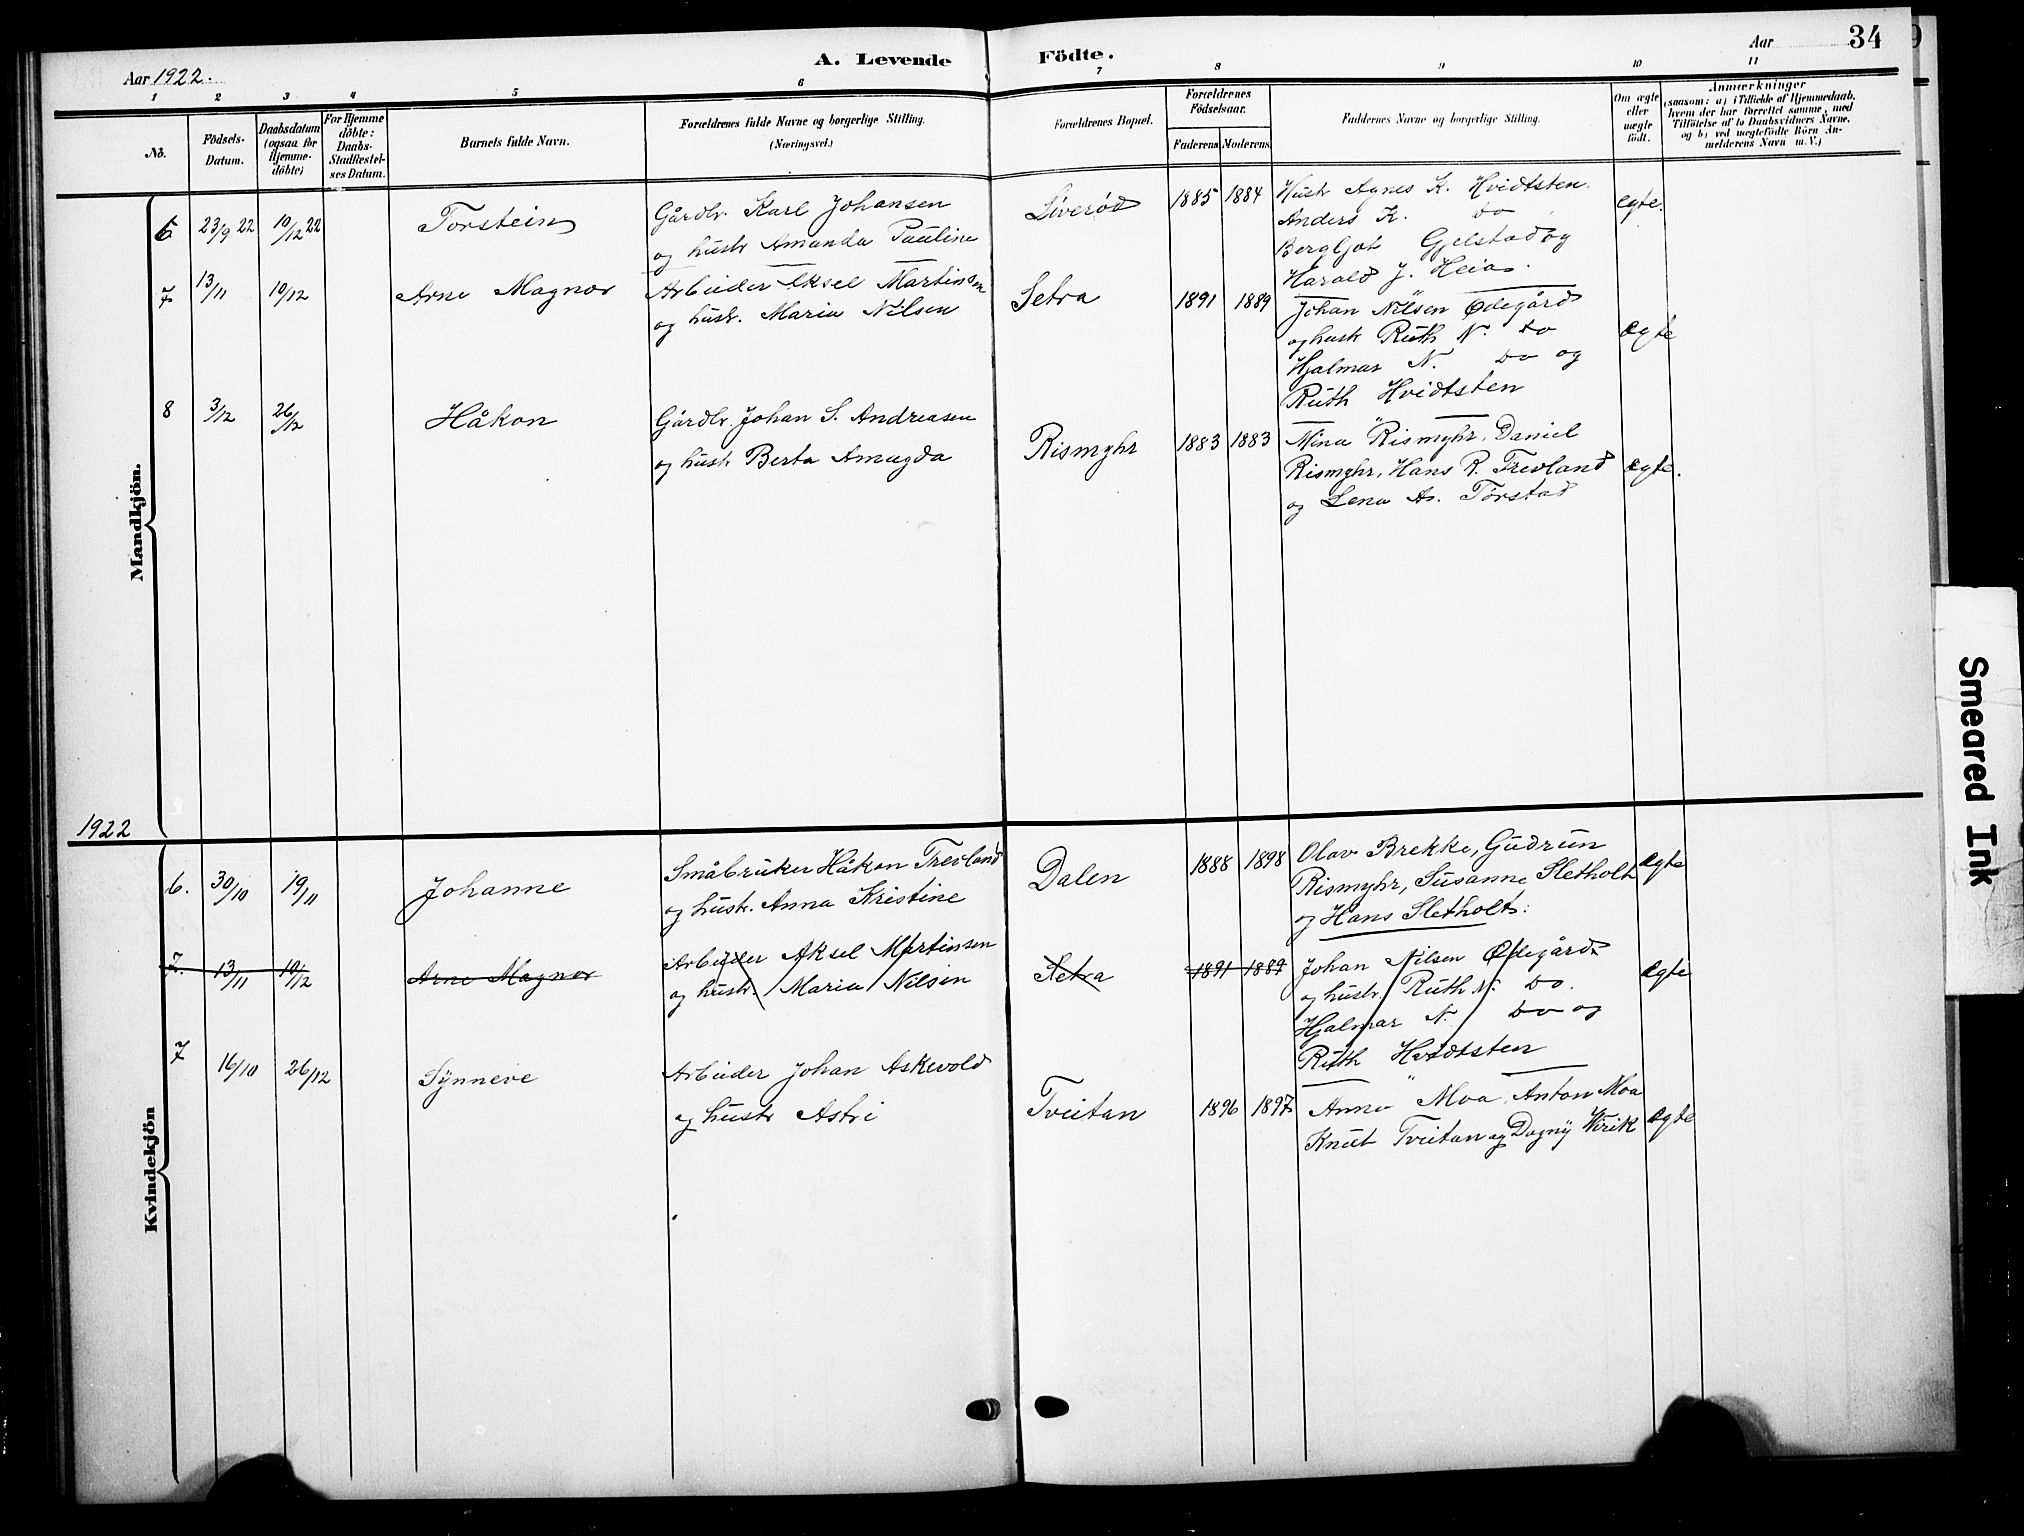 A. Levende Födte.
Aar 1922.
Aar 34
1 2 3 4 5 6 7 8 9 10 11
No.
Födsels-Datum.
Daabsdatum (ogsaa for Hjemme-döbte)
For Hjemme döbte: Daabs-Stadfæstel-ses Datum.
Barnets fulde Navn.
Forældrenes fulde Navne og borgerlige Stilling.
(Næringsvei.)
Forældrenes Bopæl.
Forældrenes Födselsaar.
Faderens Moderens
Faddernes Navne og borgerlige Stilling.
Om ægte eller uægte født.
Anmærkninger
(saasom: a) i Tilfælde af Hjemmedaab,
hvem der har forrettet samme, med
Tilföielse af to Daabsvidners Navne,
og b) ved uægtefödte Börn An-
melderens Navn m. V.)
Mandkjön.
6 23/9 22 10/12 22 Torstein Gårdbr. Karl Johansen Liverød 1885 1884 Hustr Agnes K. Hvidtsten. ægte.
og hustr Amanda Pauline Anders K. do
Bergljot Gjelstad og
Harald J. Heia.
7 13/11 10/12 Arne Magnor Arbeider Aksel Martinsen Setra 1891 1889 Johan Nilsen Ødegård
og hustr. Maria Nilsen og hustr Ruth N. do ægte
Hjalmar N. do og
Ruth Hvidtsten
8 3/12 26/12 Håkon Gårdbr. Johan S. Andreasen Rismyhr 1883 1883 Mina Rismyhr, Daniel
og hustr Berta Amagda Rismyhr, Hans R. Trevland ægte.
og Lena As. Torstad
1922
Kvindekjön
6. 30/10 19/11 Johanne Småbruker Håkon Trevland Dalen 1888 1898 Olav Brekke, Gudrun ægte
og hustr. Anna Kristine Rismyhr, Susanne Sletholt
og Hans Sletholt.
7. 13/11 10/12 Arne Magnor Arbeider Aksel Martinsen Setra 1891 1889 Johan Nilsen Ødegård ægte
og hustr. Maria Nilsen og hustr. Ruth N. do.
Hjalmar N. do og
Ruth Hvidtsten
7 16/10 26/12 Synneve Arbeider Johan Askevold Tveitan 1896 1897 Anna Moa, Anton Moa ægte
og hustr Astri Knut Tveitan og Dagny Wirik
Smeared Ink